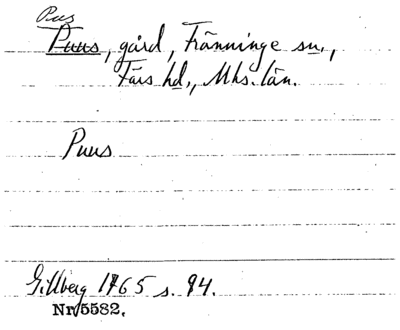 Pus
Puus, gård, Tränninge sn.,
Färs hd., Mhs. län.
Puus
Gillberg 1765 s. 94.
Nr 5582.